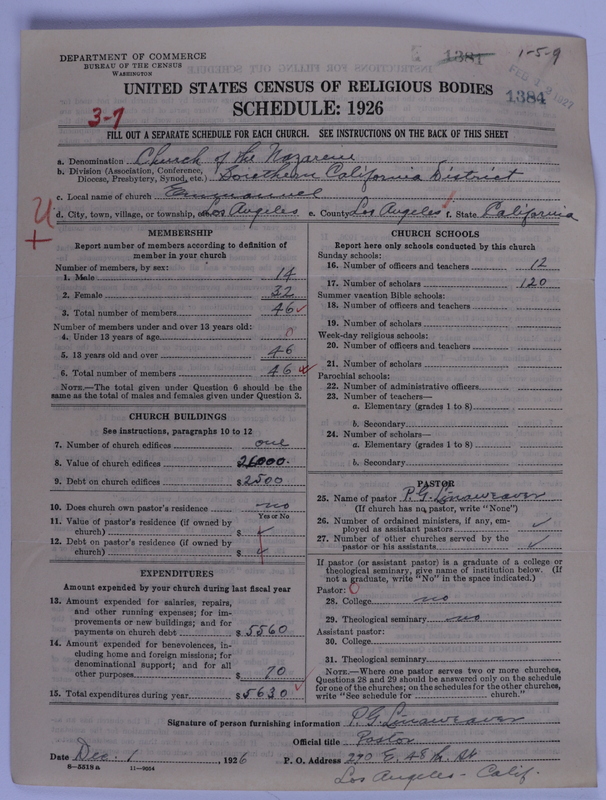 DEPARTMENT OF COMMERCE
BUREAU OF THE CENSUS
WASHINGTON
1381
1-5-9
FEB 1927
1384
UNITED STATES CENSUS OF RELIGIOUS BODIES
SCHEDULE: 1926
3-7
FILL OUT A SEPARATE SCHEDULE FOR EACH CHURCH. SEE INSTRUCTIONS ON THE BACK OF THIS SHEET
a. Denomination Church of the Nazarene
b. Division (Association, Conference, Diocese, Presbytery, Synod, etc.) Southern California District
c. Local name of church Emmanuel
U
d. City, town, village, or township, Los Angeles e. County Los Angeles f. State California
+
MEMBERSHIP
Report number of members according to definition of
member in your church
Number of members, by sex:
1. Male 14
2. Female 32
3. Total number of members 46 ✓
Number of members under and over 13 years old:
4. Under 13 years of age 0
5. 13 years old and over 46
6. Total number of members 46
NOTE.—The total given under Question 6 should be the
same as the total of males and females given under Question 3.
CHURCH BUILDINGS
See instructions, paragraphs 10 to 12
7. Number of church edifices one
8. Value of church edifices 26000.
9. Debt on church edifices $2500
10. Does church own pastor's residence no
Yes or No
11. Value of pastor's residence (if owned by
church) $
12. Debt on pastor's residence (if owned by
church) $
EXPENDITURES
Amount expended by your church during last fiscal year
13. Amount expended for salaries, repairs,
and other running expenses; for im-
provements or new buildings; and for
payments on church debt $5560
14. Amount expended for benevolences, in-
cluding home and foreign missions; for
denominational support; and for all
other purposes $ 70
15. Total expenditures during year $5630 ✓
CHURCH SCHOOLS
Report here only schools conducted by this church
Sunday schools:
16. Number of officers and teachers 12
17. Number of scholars 120
Summer vacation Bible schools:
18. Number of officers and teachers
19. Number of scholars
Week-day religious schools:
20. Number of officers and teachers
21. Number of scholars
Parochial schools:
22. Number of administrative officers
23. Number of teachers—
a. Elementary (grades 1 to 8)
b. Secondary
24. Number of scholars—
a. Elementary (grades 1 to 8)
b. Secondary
PASTOR
25. Name of pastor P. G. Linaweaver
(If church has no pastor, write "None")
26. Number of ordained ministers, if any, em-
ployed as assistant pastors ✓
27. Number of other churches served by the
pastor or his assistants ✓
If pastor (or assistant pastor) is a graduate of a college or
theological seminary, give name of institution below. (If
not a graduate, write "No" in the space indicated.)
Pastor: 0
28. College no
29. Theological seminary no
Assistant pastor:
30. College
31. Theological seminary
NOTE.—Where one pastor serves two or more churches,
Questions 28 and 29 should be answered only on the schedule
for one of the churches; on the schedules for the other churches,
write "See schedule for church."
Signature of person furnishing information P. G. Linaweaver
Official title Pastor
Date Dec. 1, 1926 P. O. Address 290 E. 48 th. St
8-5518 a 11-9004
Los Angeles - Calif.